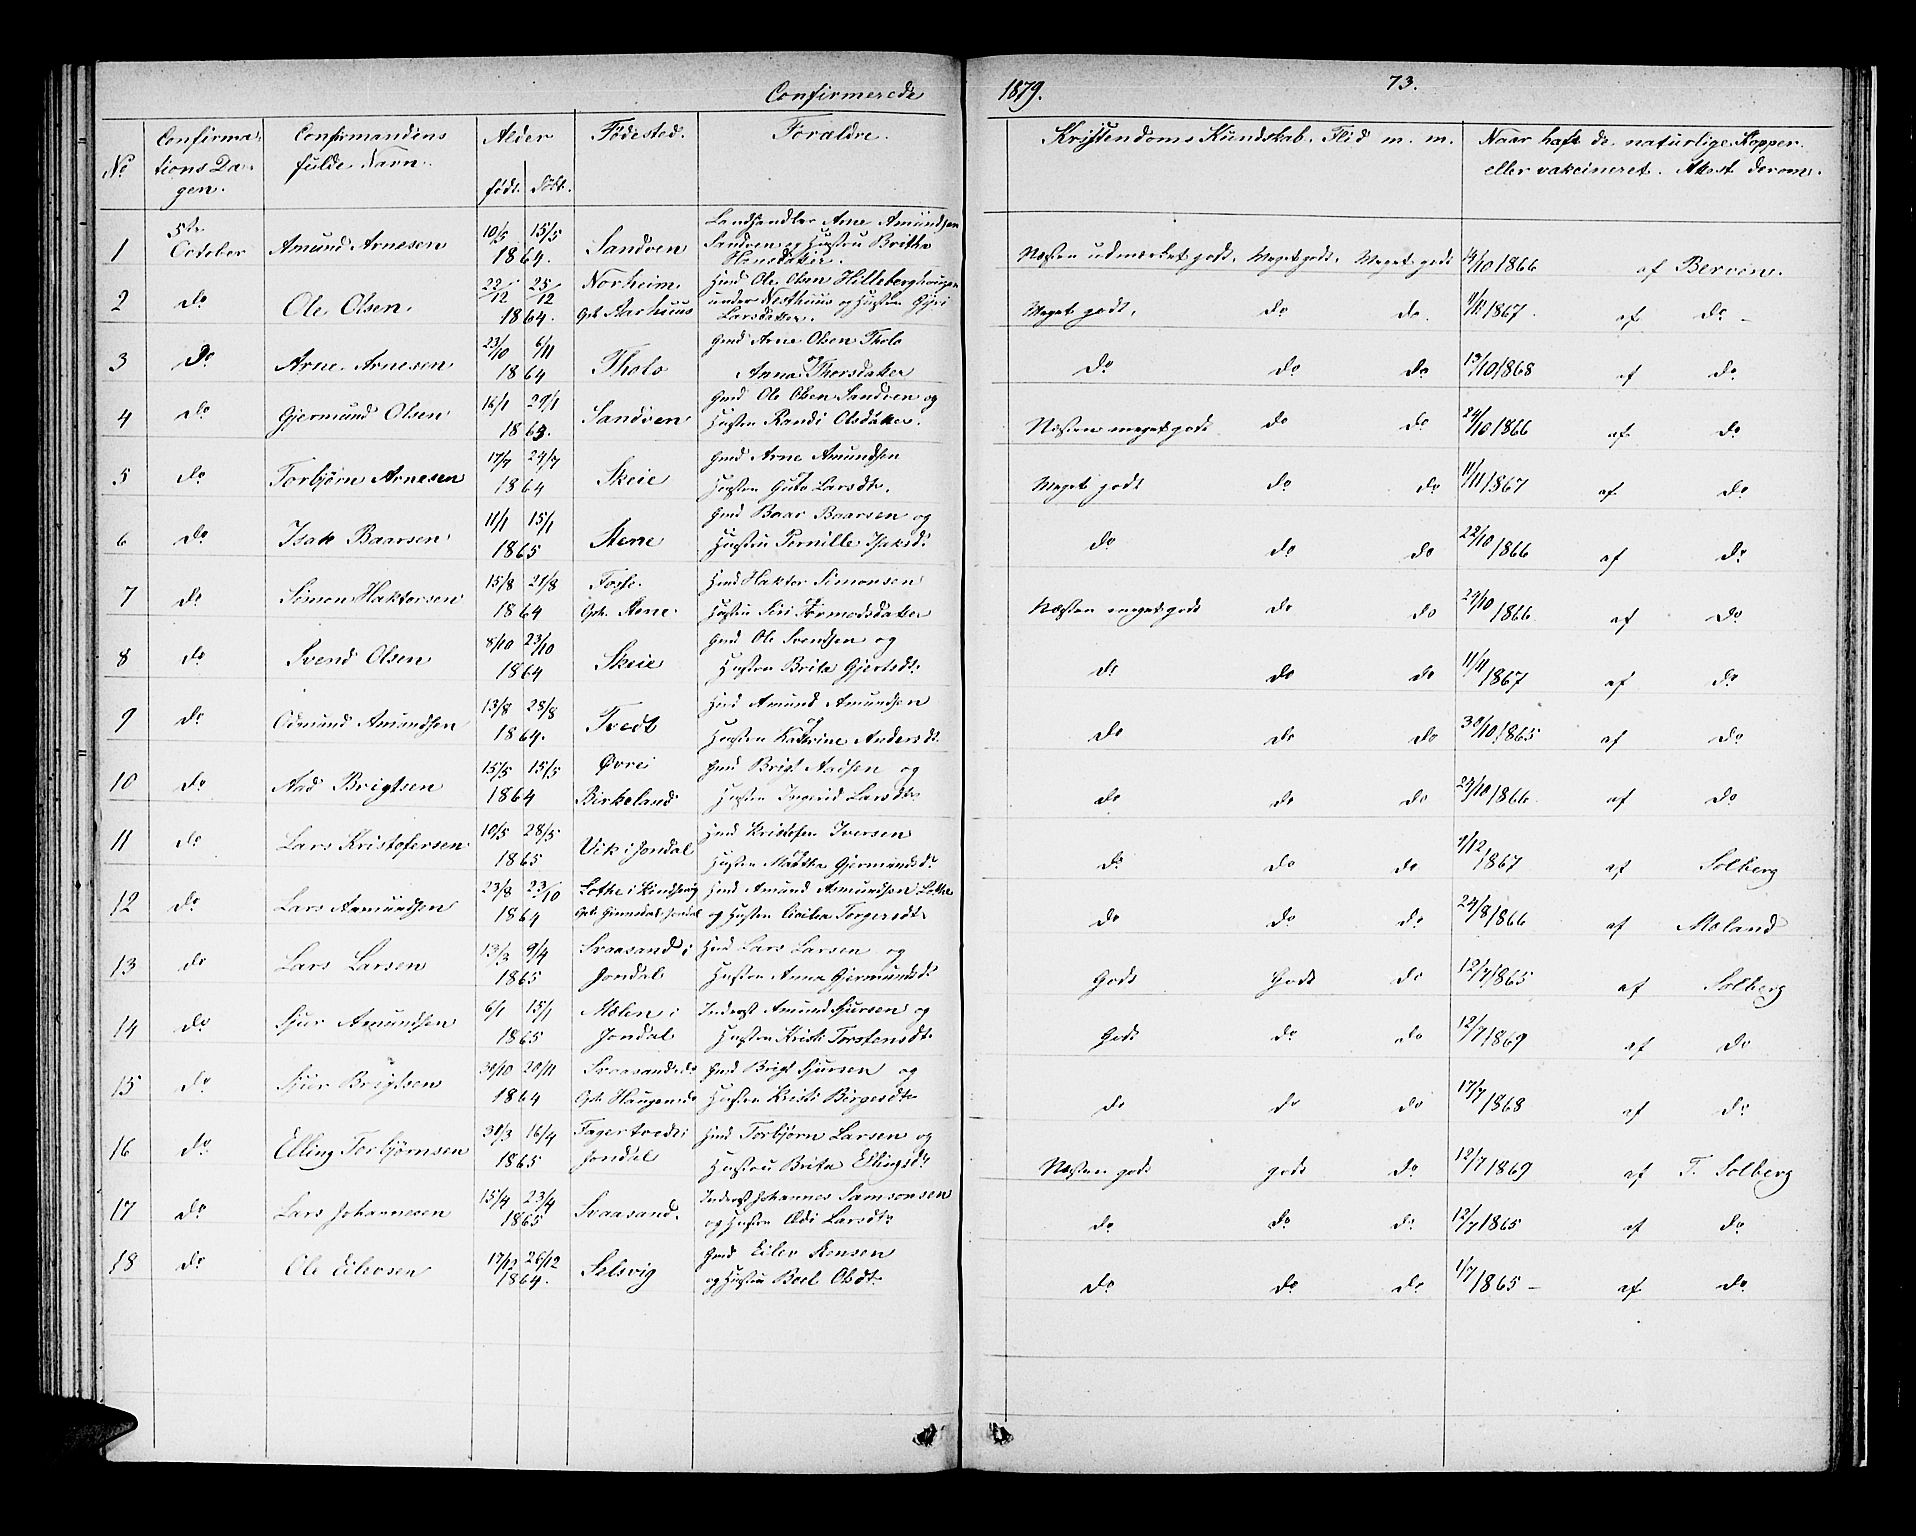 Confirmerede 1879. 73.
No Confirmationsdagen. Confirmandens fulde Navn. Alder født. døbt. Fødested. Forældre. Kristendoms Kundskab. Flid m. m. Naar haft de naturlige Kopper eller vakcineret. Attest derom.
1 5te October Amund Arnesen 10/5 15/5 1864. Sandven Landhandler Arne Amundsen Sandven og Hustru Britha Hansdatter. Næsten udmærket godt. Meget godt. Meget godt 1866 af Berven.
2 do Ole Olsen. 22/12 25/12 1864. Norheim. Gpl. Aarhuus Hmd Ole Olsen under Nesthuus og Hustru Larsdatter. Meget godt. do do. 1867. af do -
3 do Arne Arnesen 23/10 6/11 1864 Tholo Gmd Arne Olsen Tholo og Anna Thorsdatter do do do 13/10 1868 af do
4 do Gjermund Olsen 16/1 29/1 1865. Sandven Gmd Ole Olsen Sandven og Hustru Randi Olsdatter. Næsten meget godt do do 24/10 1866 af do
5 do Torbjørn Arnesen 17/7 24/7 1864 Skeie Gmd Arne Amundsen Hustru Guro Larsdtr. Meget godt do do 11/11 1867 af do
6 do Isak Baarsen 11/1 15/1 1865 Stene Gmd Baar Baarsen og Hustru Pernille Isaksd. do do do 22/10 1866 af do
7 do Simon Haktorsen 15/8 21/8 1864 Fosse. Gpl. Stene. Hmd Haktor Simonsen Hustru Siri Tormodsdatter Næsten meget godt do do 24/10 1866 af do
8 do Svend Olsen 8/10 23/10 1864 Skeie Gmd Ole Svendsen og Hustru Brita Gjertsdtr do do do 11/11 1867 af do
9 do Odmund Amundsen 13/8 28/8 1864. Tvedt Hmd Amund Amundsen og Hustru Kathrine Andersdtr do do do 30/10 1865 af do
10 do Aad Brigtsen 15/5 15/5 1864 Øvre Birkeland Gmd Brigt Aadsen og Hustru Ingerid Larsdtr do do do 24/10 1866. af do
11 do Lars Kristofersen 10/5 28/5 1865 Vik i Jondal Hmd Kristofer Iversen og Hustru Martha Gjermundsd. do do do 1/12 1867 af Solberg
12 do Lars Aamundsen 23/8 23/10 1864 Lothe i Kindservig Jondal Hmd Amund Asmundsen Lothe og Hustru Cicilia Torgersdtr do do do 24/8 1866 af Moland
13 do Lars Larsen 13/3 9/4 1865 Svaasand i Jondal Hmd Lars Larsen og Hustru Anna Gjermundsd. Godt Godt do 12/7 1865 af Solberg
14 do Sjur Amundsen 6/1 15/1 1865 Molen i Jondal Inderst Amund Sjursen og Hustru Kristi Torstensdtr Godt do do 12/7 1869 af do
15 do Sjur Brigtsen 30/10 20/11 1864 Svaasand do Gpl. Haugen do Gmd Brigt Sjursen og Hustru Kristi Birgesdtr do do do 17/7 1868 af do
16 do Elling Torbjørnsen 30/3 16/4 1865 Fagertvedt i Jondal Hmd Torbjørn Larsen og Hustru Brita Ellingsdr Næsten godt godt do 12/7 1869 af T. Solberg
17 do Lars Johannesen 15/4 23/4 1865 Svaasand. Inderst Johannes Samsonsen og Hustru Larsdtr do do do 12/7 1865 af do
18 do Ole Eilevsen 17/12 26/12 1864. Selsvig Gmd Eilev og Hustru Boel Olsdtr do do do 1/7 1865 - af do